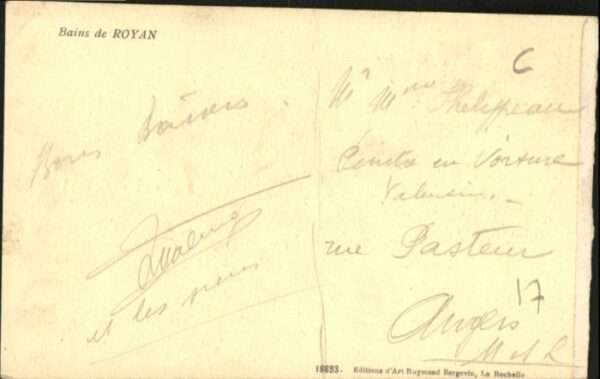 Bains de ROYAN
C
Bons Baisers
et les siens
Mr Mme Phelippeau
Peintre en Voiture
rue Pasteur
Angers
17
M et L
18693. Editions d'Art Raymond Bergevin, La Rochelle